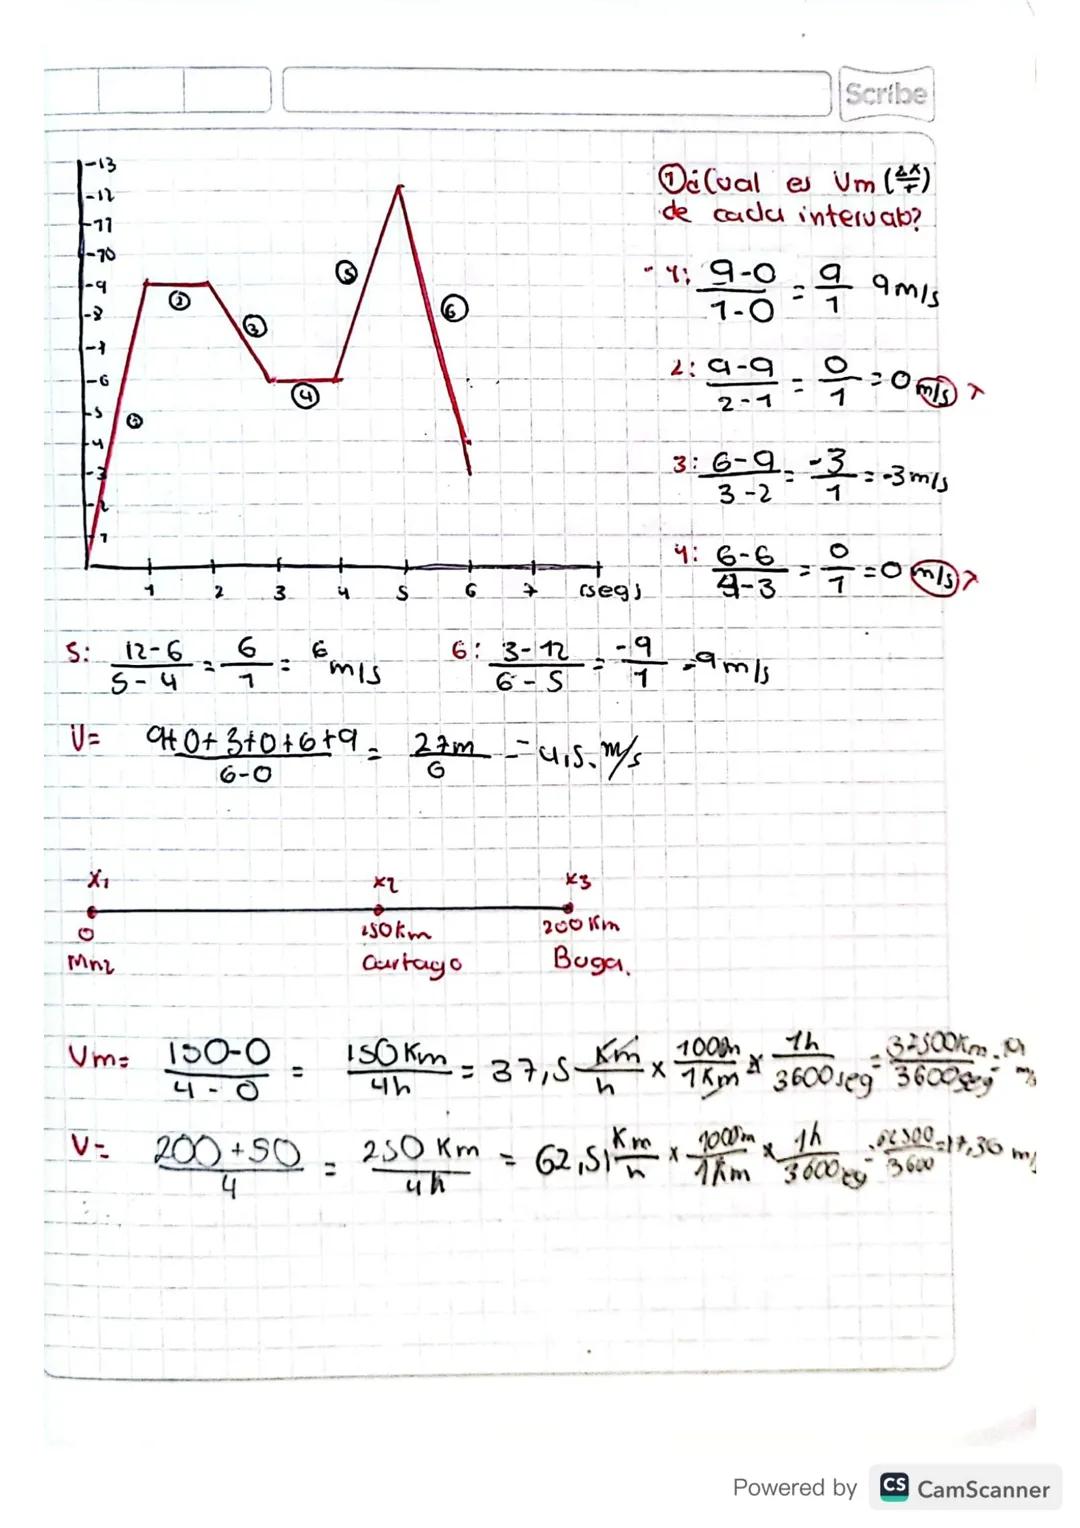 Scribe
13
12
11
10
9
8
7
6
5
4
3
2
1
② ③ ④ ⑤ ⑥
1 2 3 4 5 6 7 (seg)
① ¿Cual es Vm (Δx/t)
de cada intervalo?
1: 9-0/1-0 = 9/1 9m/s
2: 9-9/2-1 = 0/1 = 0 m/s
3: 6-9/3-2 = -3/1 = -3 m/s
4: 6-6/4-3 = 0/1 = 0 m/s
5: 12-6/5-4 = 6/1 = 6 m/s 6: 3-12/6-5 = -9/1 = -9 m/s
V= 9+0+3+0+6+9/6-0 = 27m/6 = 4,5 m/s
X1 X2 X3
0 150km 200 Km
Mnz Cartago Buga.
Vm= 150-0/4-0 = 150 Km/4h = 37,5 Km/h x 1000m/1Km x 1h/3600 seg = 37500Km/3600seg =
V= 200+50/4 = 250 Km/4h = 62,5 Km/h x 1000m/1Km x 1h/3600 seg = 62500/3600 = 17,36 m/
Powered by CS CamScanner